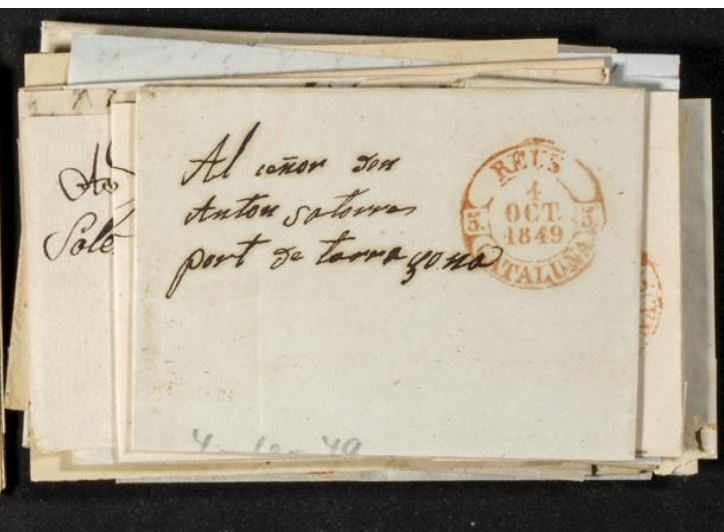 Al señor don
Anton satorras
port de tarragona
REUS
4
OCT.
1849
5. 5.
CATALUÑA
Solé
4-10-49